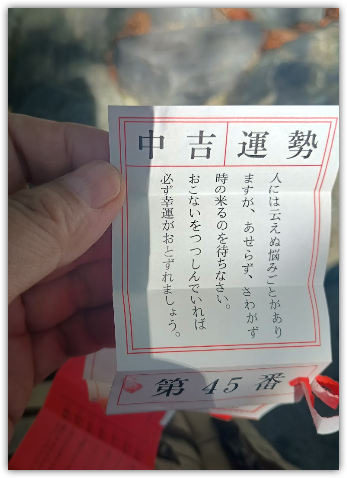 中吉 運勢
人には云えぬ悩みごとがあり
ますが、あせらず、さわがず
時の来るのを待ちなさい。
おこないをつつしんでいれば
必ず幸運がおとずれましょう。
第45番